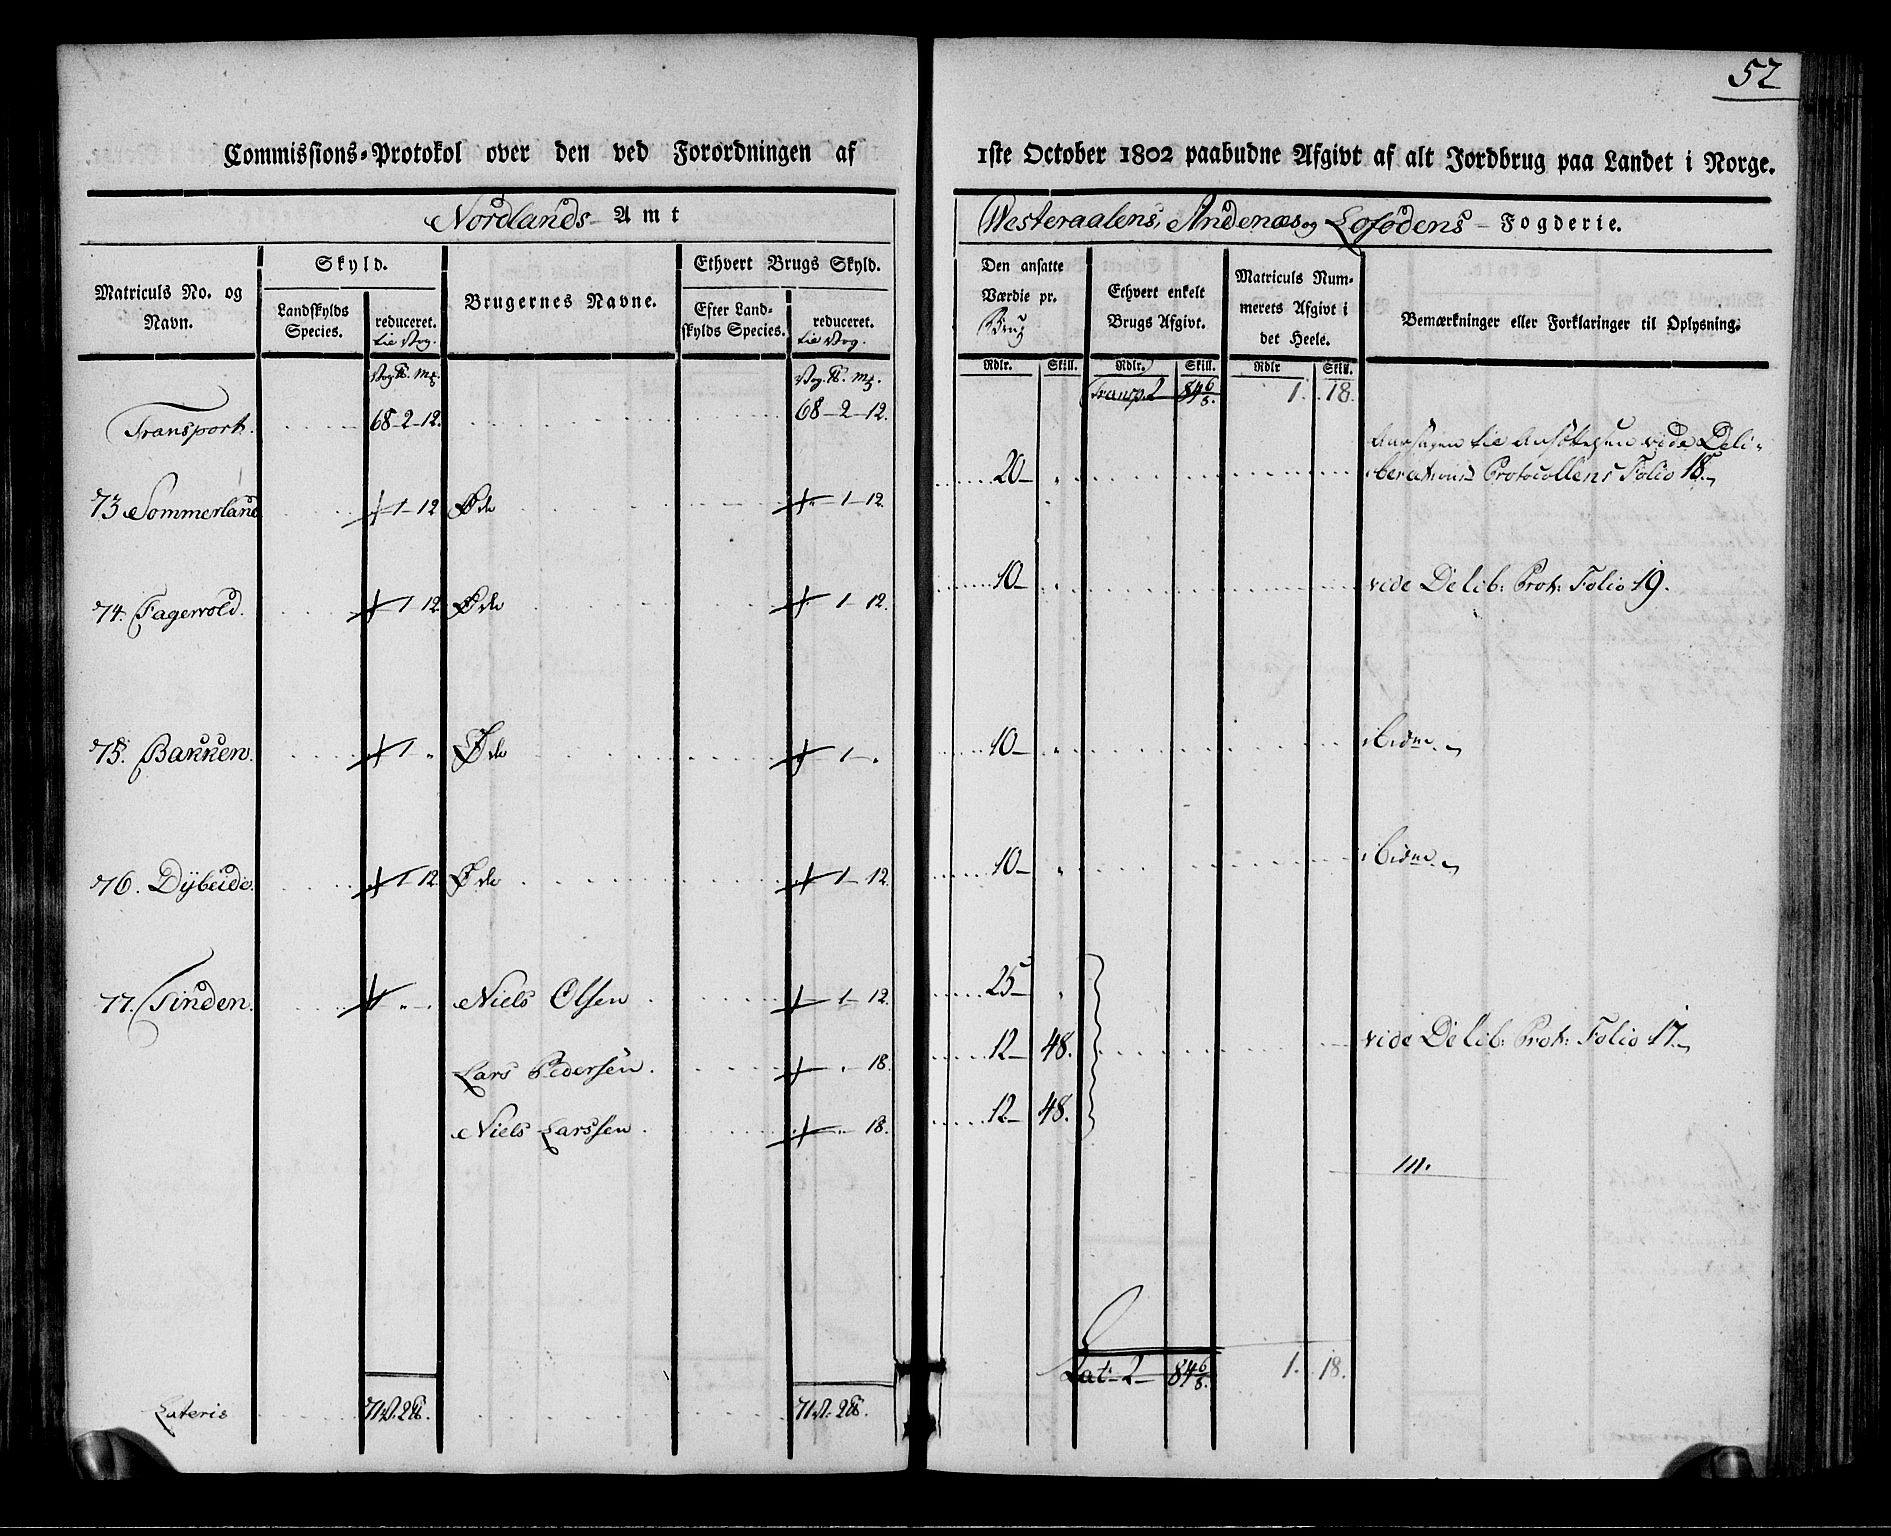 52
Commissions-Protokol over den ved Forordningen af 1ste October 1802 paabudne Afgivt af alt Jordbrug paa Landet i Norge.
Nordlands Amt
Westeraalens, Andenæs og Lofodens - Fogderie.
Matriculs No. og Navn.
Skyld.
Landskylds Species.
reduceret. tie Vog.
Brugernes Navne.
Ethvert Brugs Skyld.
Efter Landskylds Species.
reduceret. tie Vog.
Den ansatte Værdie pr. Brug
Ethvert enkelt Brugs Afgivt.
Matriculs Nummerets Afgivt i det Heele.
Bemærkninger eller Forklaringer til Oplysning.
Rdlr. Skill. Rdlr. Skill. Rdlr Skill.
Transport. 68-2-12. 68-2-12. Transp. 2 84 6/8. 1. 18.
73 Sommerland 1-12 Øde 1-12. 20 Aarsagen tie Ansættelsen vide Deliberations Protocollens Folio 18.
74. Fagervold. 1 12 Øde 1-12. 10 vide Delib: Prot: Folio 19.
75. Bakken. 1 Øde 1 10 ibidm.
76. Dybeide. 1 12. Øde 1-12. 10 ibidm.
77. Tinden. Niels Olsen 1-12. 25
Lars Pedersen. 18. 12 48. vide Delib: Prot: Folio 17.
Niels Larssen 18. 12 48.
Lateris 71 V. 2 ℔. 71 V. 2 ℔. Lat 2 84 6/8. 1. 18.